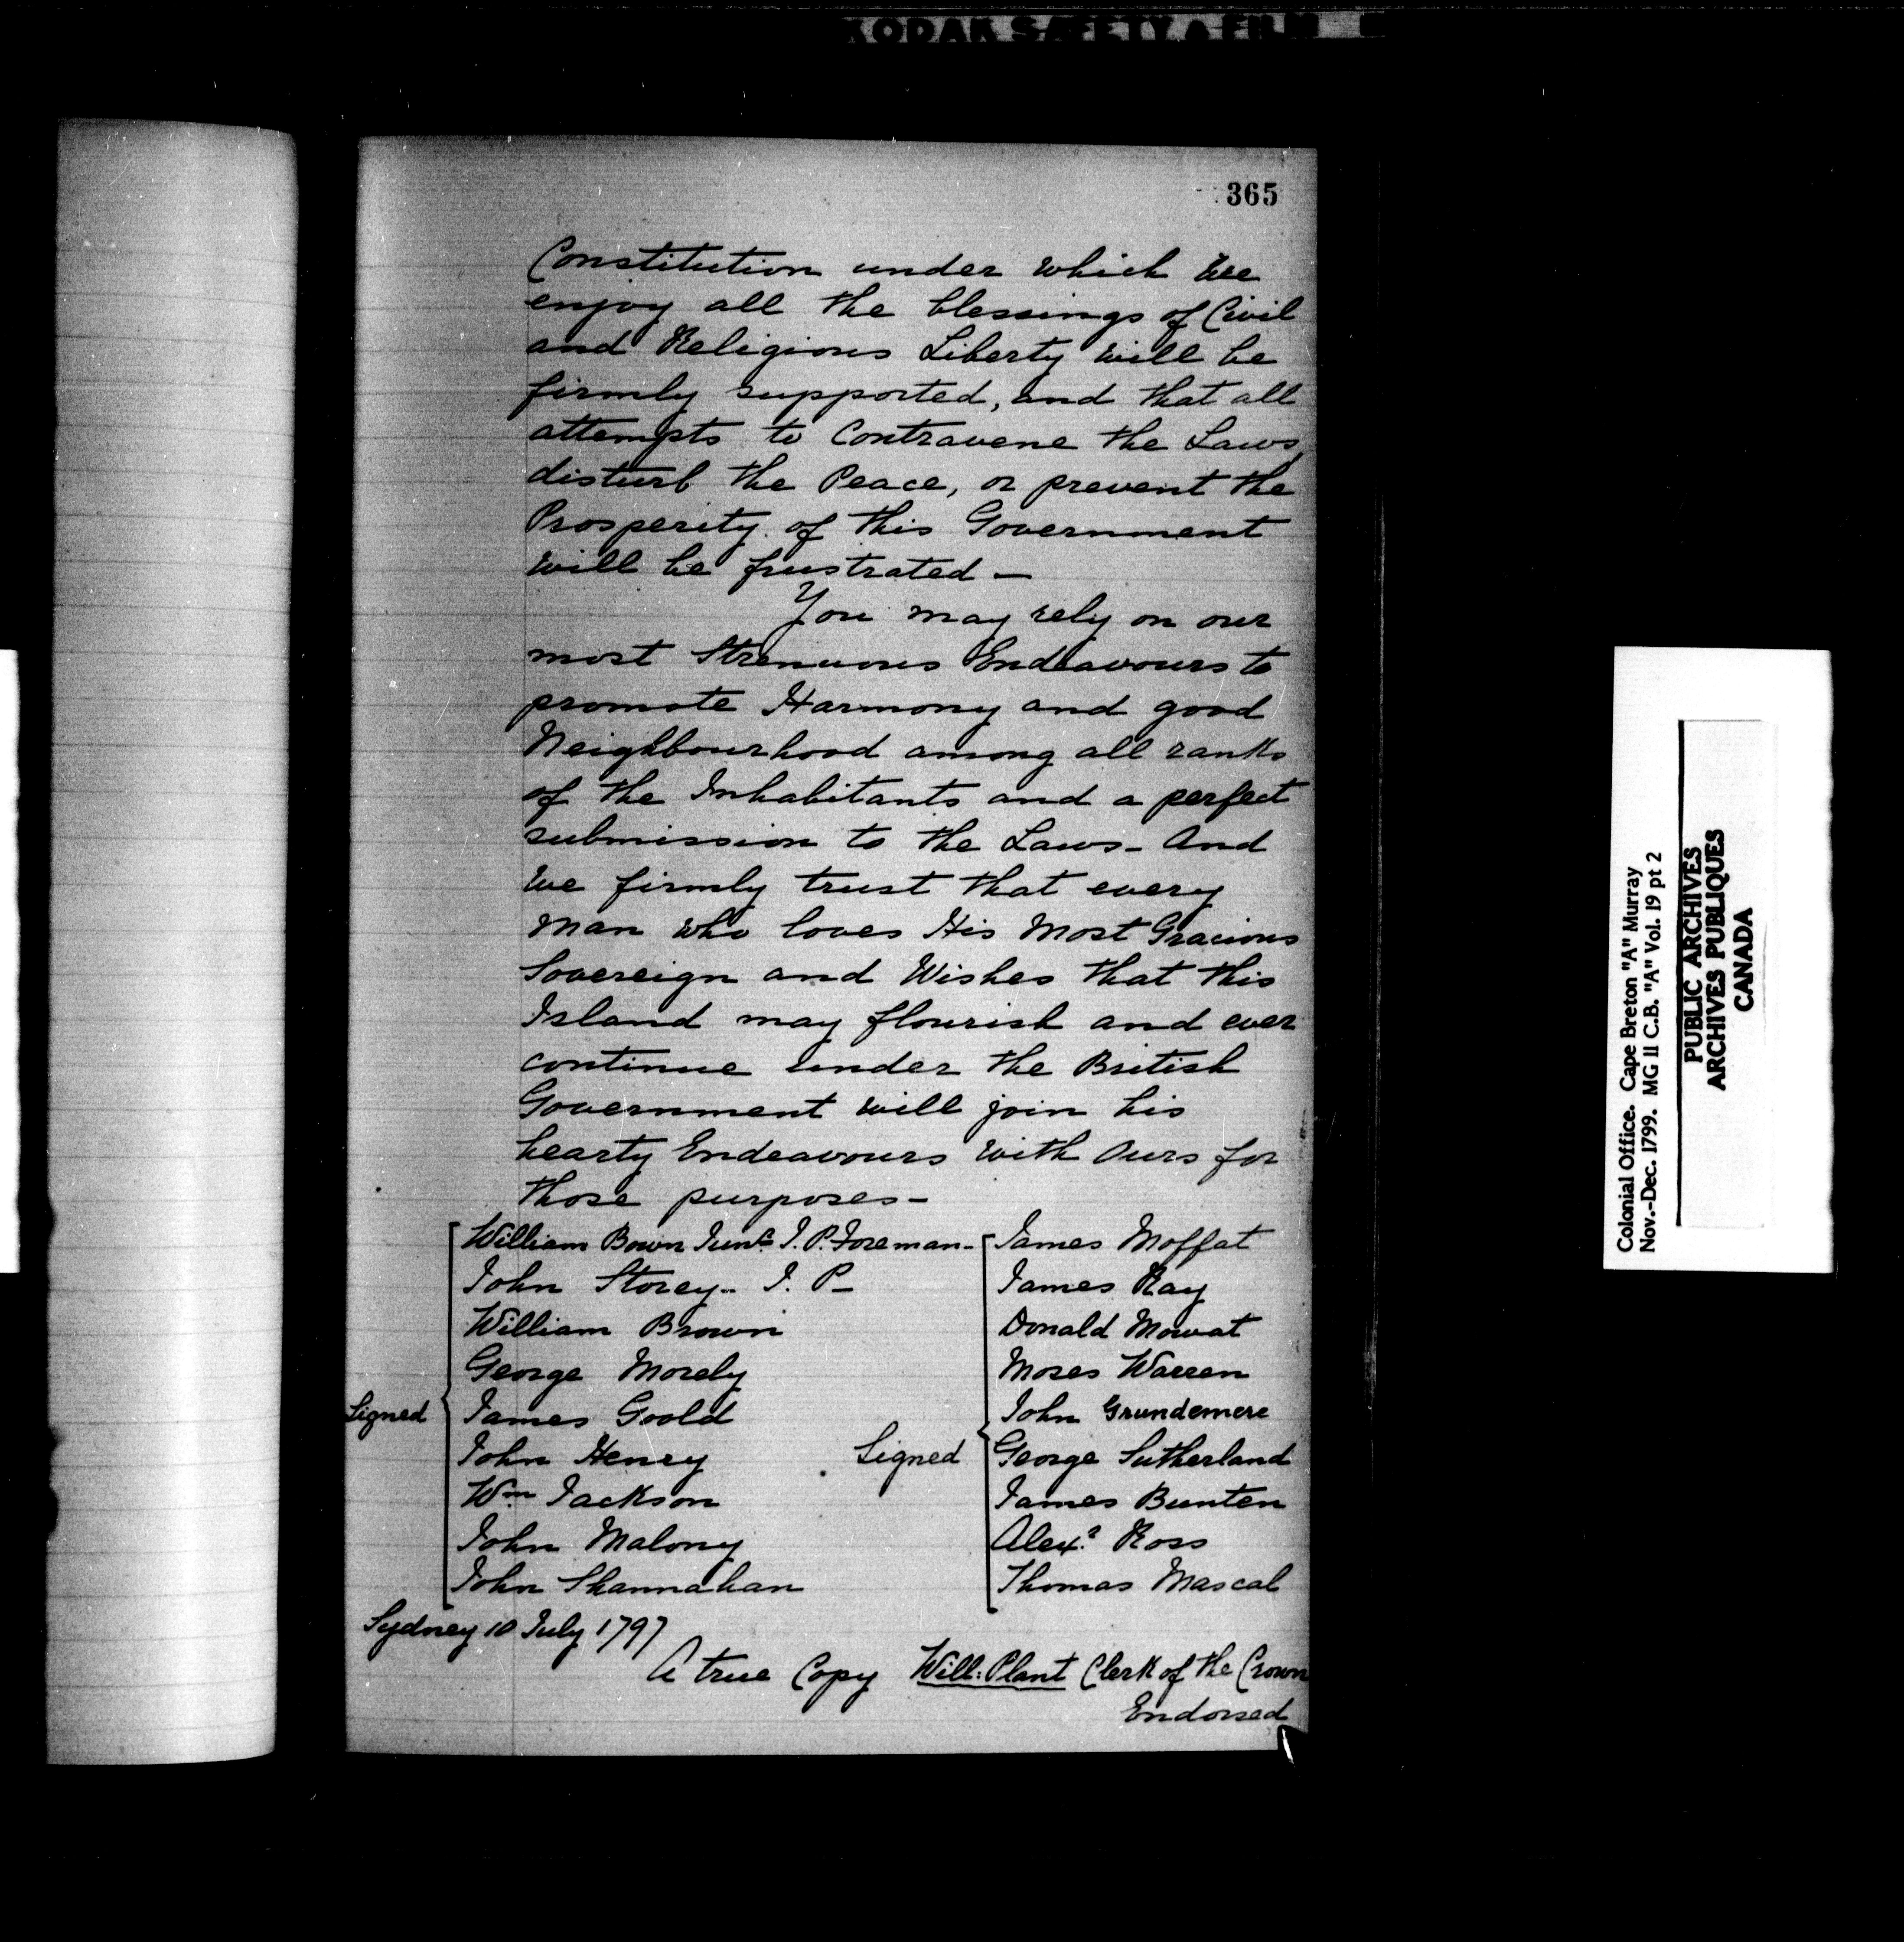 KODAK SAFETY FILM
365
Constitution under which We
enjoy all the blessings of Civil
and Religious Liberty will be
firmly supported, and that all
attempts to Contravene the Laws,
disturb the Peace, or prevent the
Prosperity of this Government
will be frustrated —
You may rely on our
most Strenuous Endeavours to
promote Harmony and good
Neighbourhood among all ranks
of the Inhabitants and a perfect
submission to the Laws - And
we firmly trust that every
Man who loves His Most Gracious
Sovereign and Wishes that this
Island may flourish and ever
continue under the British
Government will join his
hearty Endeavours with Ours for
those purposes -
William Bown Junr. J. P. Foreman -
John Storey - J. P -
William Brown
George Morely
Signed James Goold
John Henry
Wm Jackson
John Malony
John Shannahan
James Moffat
James Ray
Donald Mowat
Moses Warren
John Grundemere
Signed George Sutherland
James Bunten
Alexr. Ross
Thomas Mascal
Sydney 10 July 1797
A true Copy Will: Plant Clerk of the Crown
Endorsed
Colonial Office. Cape Breton "A" Murray
Nov.-Dec. 1799. MG 11 C.B. "A" Vol. 19 pt 2
PUBLIC ARCHIVES
ARCHIVES PUBLIQUES
CANADA